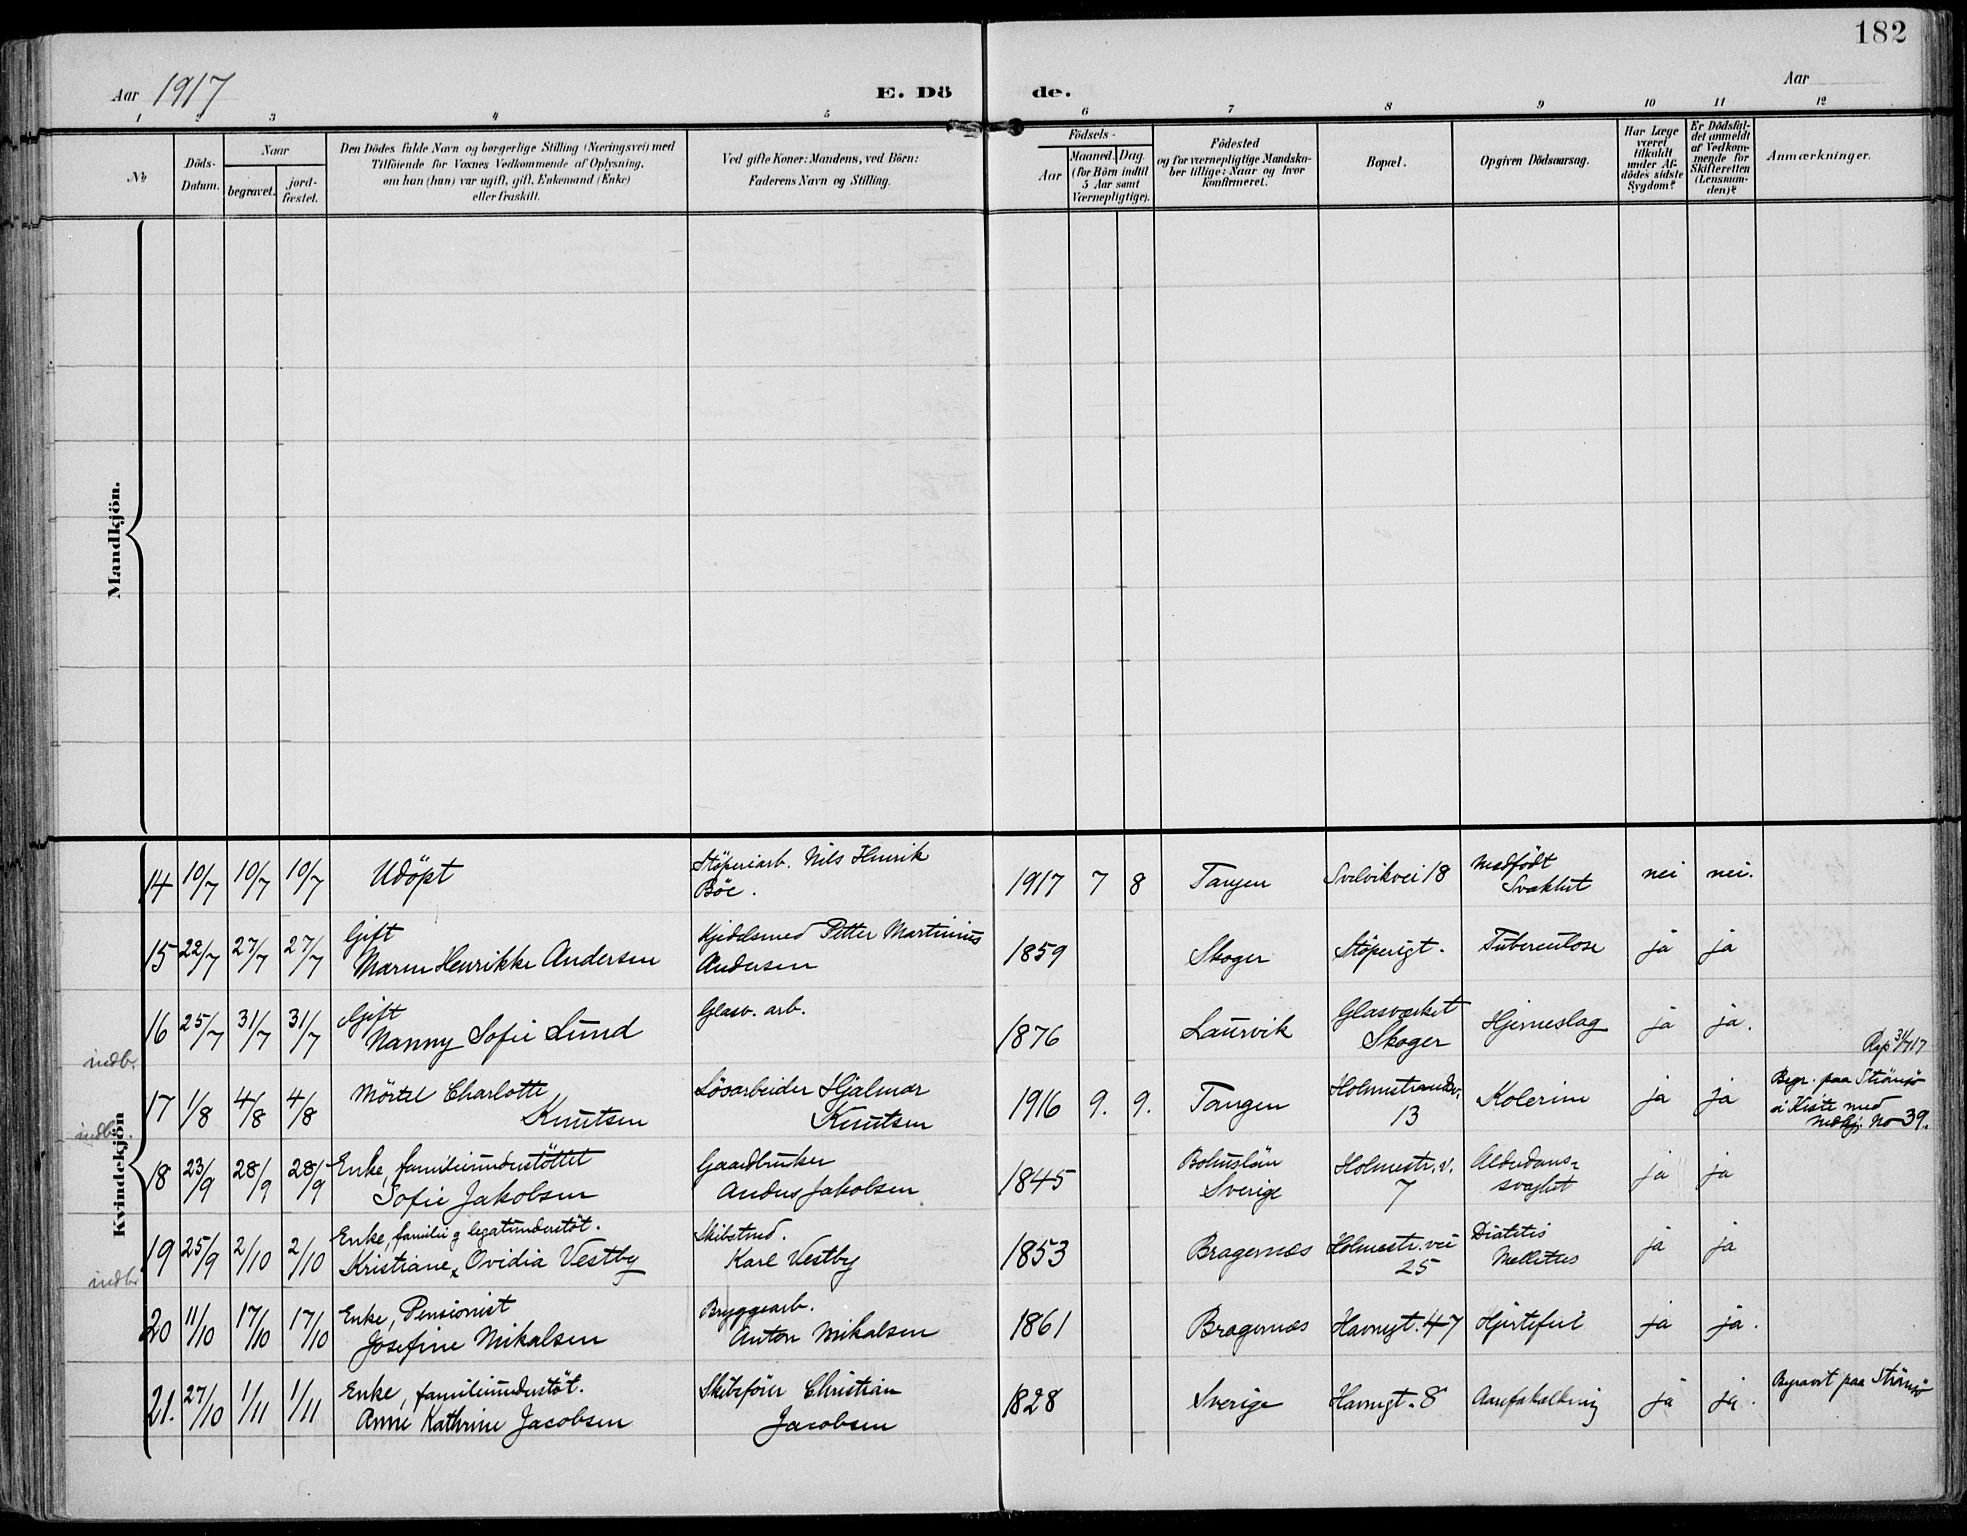 182
Aar 1917
E. Dö de.
Aar
1 2 3 4 5 6 7 8 9 10 11 12
No
Döds-
Datum.
Naar
begravet.
jord-
fæstet.
Den Dödes fulde Navn og borgerlige Stilling (Næringsvei) med
Tilföiende for Voxnes Vedkommende af Oplysning,
om han (hun) var ugift, gift, Enkemand (Enke)
eller fraskilt.
Ved gifte Koner: Mandens, ved Börn:
Faderens Navn og Stilling.
Födsels-
Aar
Maaned. Dag.
(for Börn indtil
5 Aar samt
Værnepligtige).
Födested
og for værnepligtige Mandska-
ber tillige: Naar og hvor
konfirmeret.
Bopæl.
Opgiven Dödsaarsag.
Har Læge
været
tilkaldt
under Af-
dödes sidste
Sygdom?
Er Dödsfal-
det anmeldt
af Vedkom-
mende for
Skifteretten
(Lensman-
den)?
Anmærkninger.
Mandkjön.
Kvindekjön
14 10/7 10/7 10/7 Udöpt
Stöperiarb. Nils Henrik
Böe.
1917 7 8 Tangen Svelvikvei 18
Medfödt
Svakhet
nei nei.
15 22/7 27/7 27/7
Gift
Maren Henrikke Andersen
Kjedelsmed Petter Martinius
Andersen
1859 Skoger Stöperigt. Tuberculose ja ja
16 25/7 31/7 31/7
Gift
Nanny Sofie Lund
Glasv. arb.
1876 Laurvik
Glasværket
Skoger
Hjerneslag ja ja.
indb.
17 1/8 4/8 4/8
Mörtel Charlotte
Knutsen
Lösarbeider Hjalmar
Knutsen
1916 9. 9. Tangen
Holmestrandsv.
13
Kolerine ja ja
Begr. paa Strömsö
i Kiste med
No 39.
indb.
18 23/9 28/9 28/9
Enke, familieunderstöttet
Sofie Jakobsen
Gaardbruker
Anders Jakobsen
1845
Bohuslän
Sverige
Holmestr. v.
7
Alderdoms-
svaghet
ja ja
19 25/9 2/10 2/10
Enke, familie og legatunderstöt.
Kristiane Ovidia Vestby
Skibstmd.
Karl Vestby
1853 Bragernæs
Holmestr. vei
25
Diabetis
Mellitus
ja ja
indb.
20 11/10 17/10 17/10
Enke, Pensionist
Josefine Mikalsen
Bryggearb.
Anton Mikalsen
1861 Bragernæs Havnegt. 47 Hjertefeil ja ja.
21. 27/10 1/11 1/11
Enke, familieunderstöt.
Anne Kathrine Jacobsen
Skibsförer Christian
Jacobsen
1828 Sverige Havnegt. 8 Aareforkalkning ja ja.
Begravet paa Strömsö